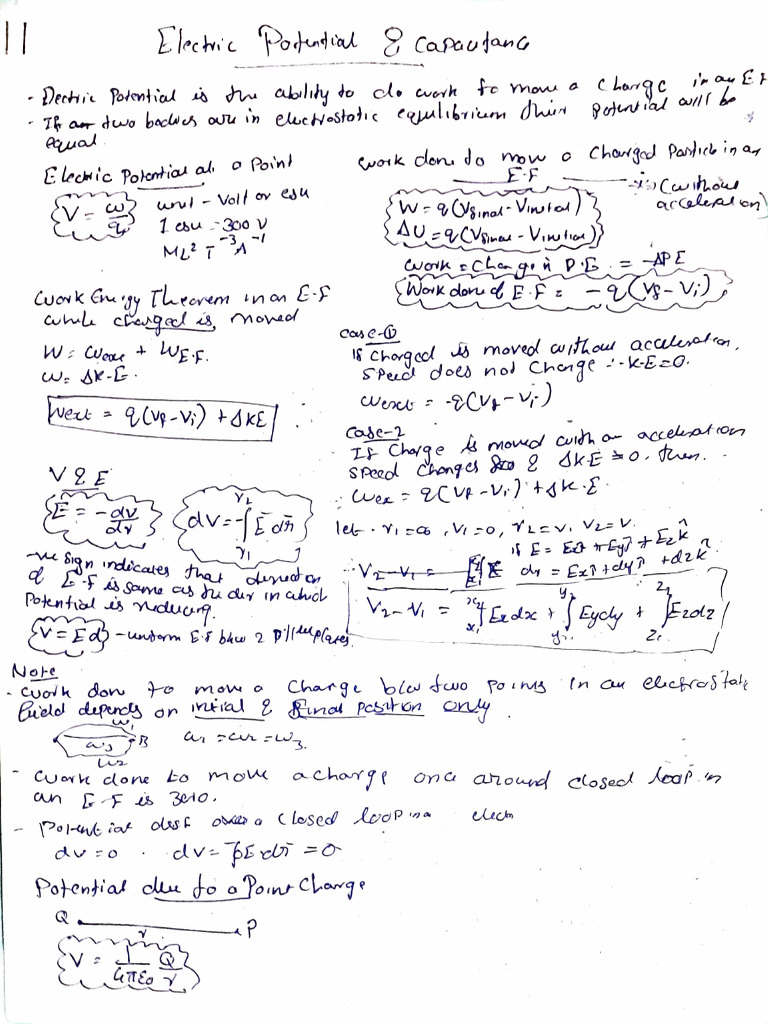 11
Electric Potential & Capacitance
- Electric Potential is the ability to do work to move a charge in an E.F
- If two bodies are in electrostatic equilibrium their potential will be
equal.
Electric Potential at a Point
V = w/q
unit - Volt or esu
1 esu = 300 V
ML² T⁻³ A⁻¹
work done to move a charged Particle in an
E.F
(without
acceleration)
W = q(Vfinal - Vinitial)
ΔU = q(Vfinal - Vinitial)
work = Change in P.E. = -ΔPE
Work done of E.F = -q(Vf - Vi)
Work Energy Theorem in an E.F
while charged is moved
W = wext + WE.F.
w = ΔK.E.
Wext = q(Vf - Vi) + ΔKE
case-①
If charged is moved without acceleration,
speed does not change ∴ K.E = 0.
wext = -q(Vf - Vi)
Case-2
If Charge is moved with an acceleration
speed changes & ΔK.E ≠ 0, then.
wex = q(Vf - Vi) + ΔK.E
V & E
E = -dv/dr
dV = -∫ r₁ r₂ E dr
-ve sign indicates that direction
of E.F is same as the dir in which
Potential is reducing.
V = Ed - uniform E.f b/w 2 plates
let r₁ = ∞, V₁ = 0, r₂ = v, V₂ = V.
if E = Exî + Eyĵ + Ezk̂
V₂ - V₁ =
dr = Exî + dyĵ + dzk̂
V₂ - V₁ = ∫ x₁ x₂ Exdx + ∫ y₁ y₂ Eydy + ∫ z₁ z₂ Ezdz
Note
- work done to move a charge b/w two points in an electrostatic
field depends on initial & final position only.
w₁
w₃ B w₁ = w₂ = w₃.
w₂
- work done to move a charge once around closed loop in
an E.F is zero.
- Potential diff over a closed loop in a elect
dv = 0 . dv = -∮E dr = 0
Potential due to a Point Charge
Q r P
V = 1/4πε₀ Q/r